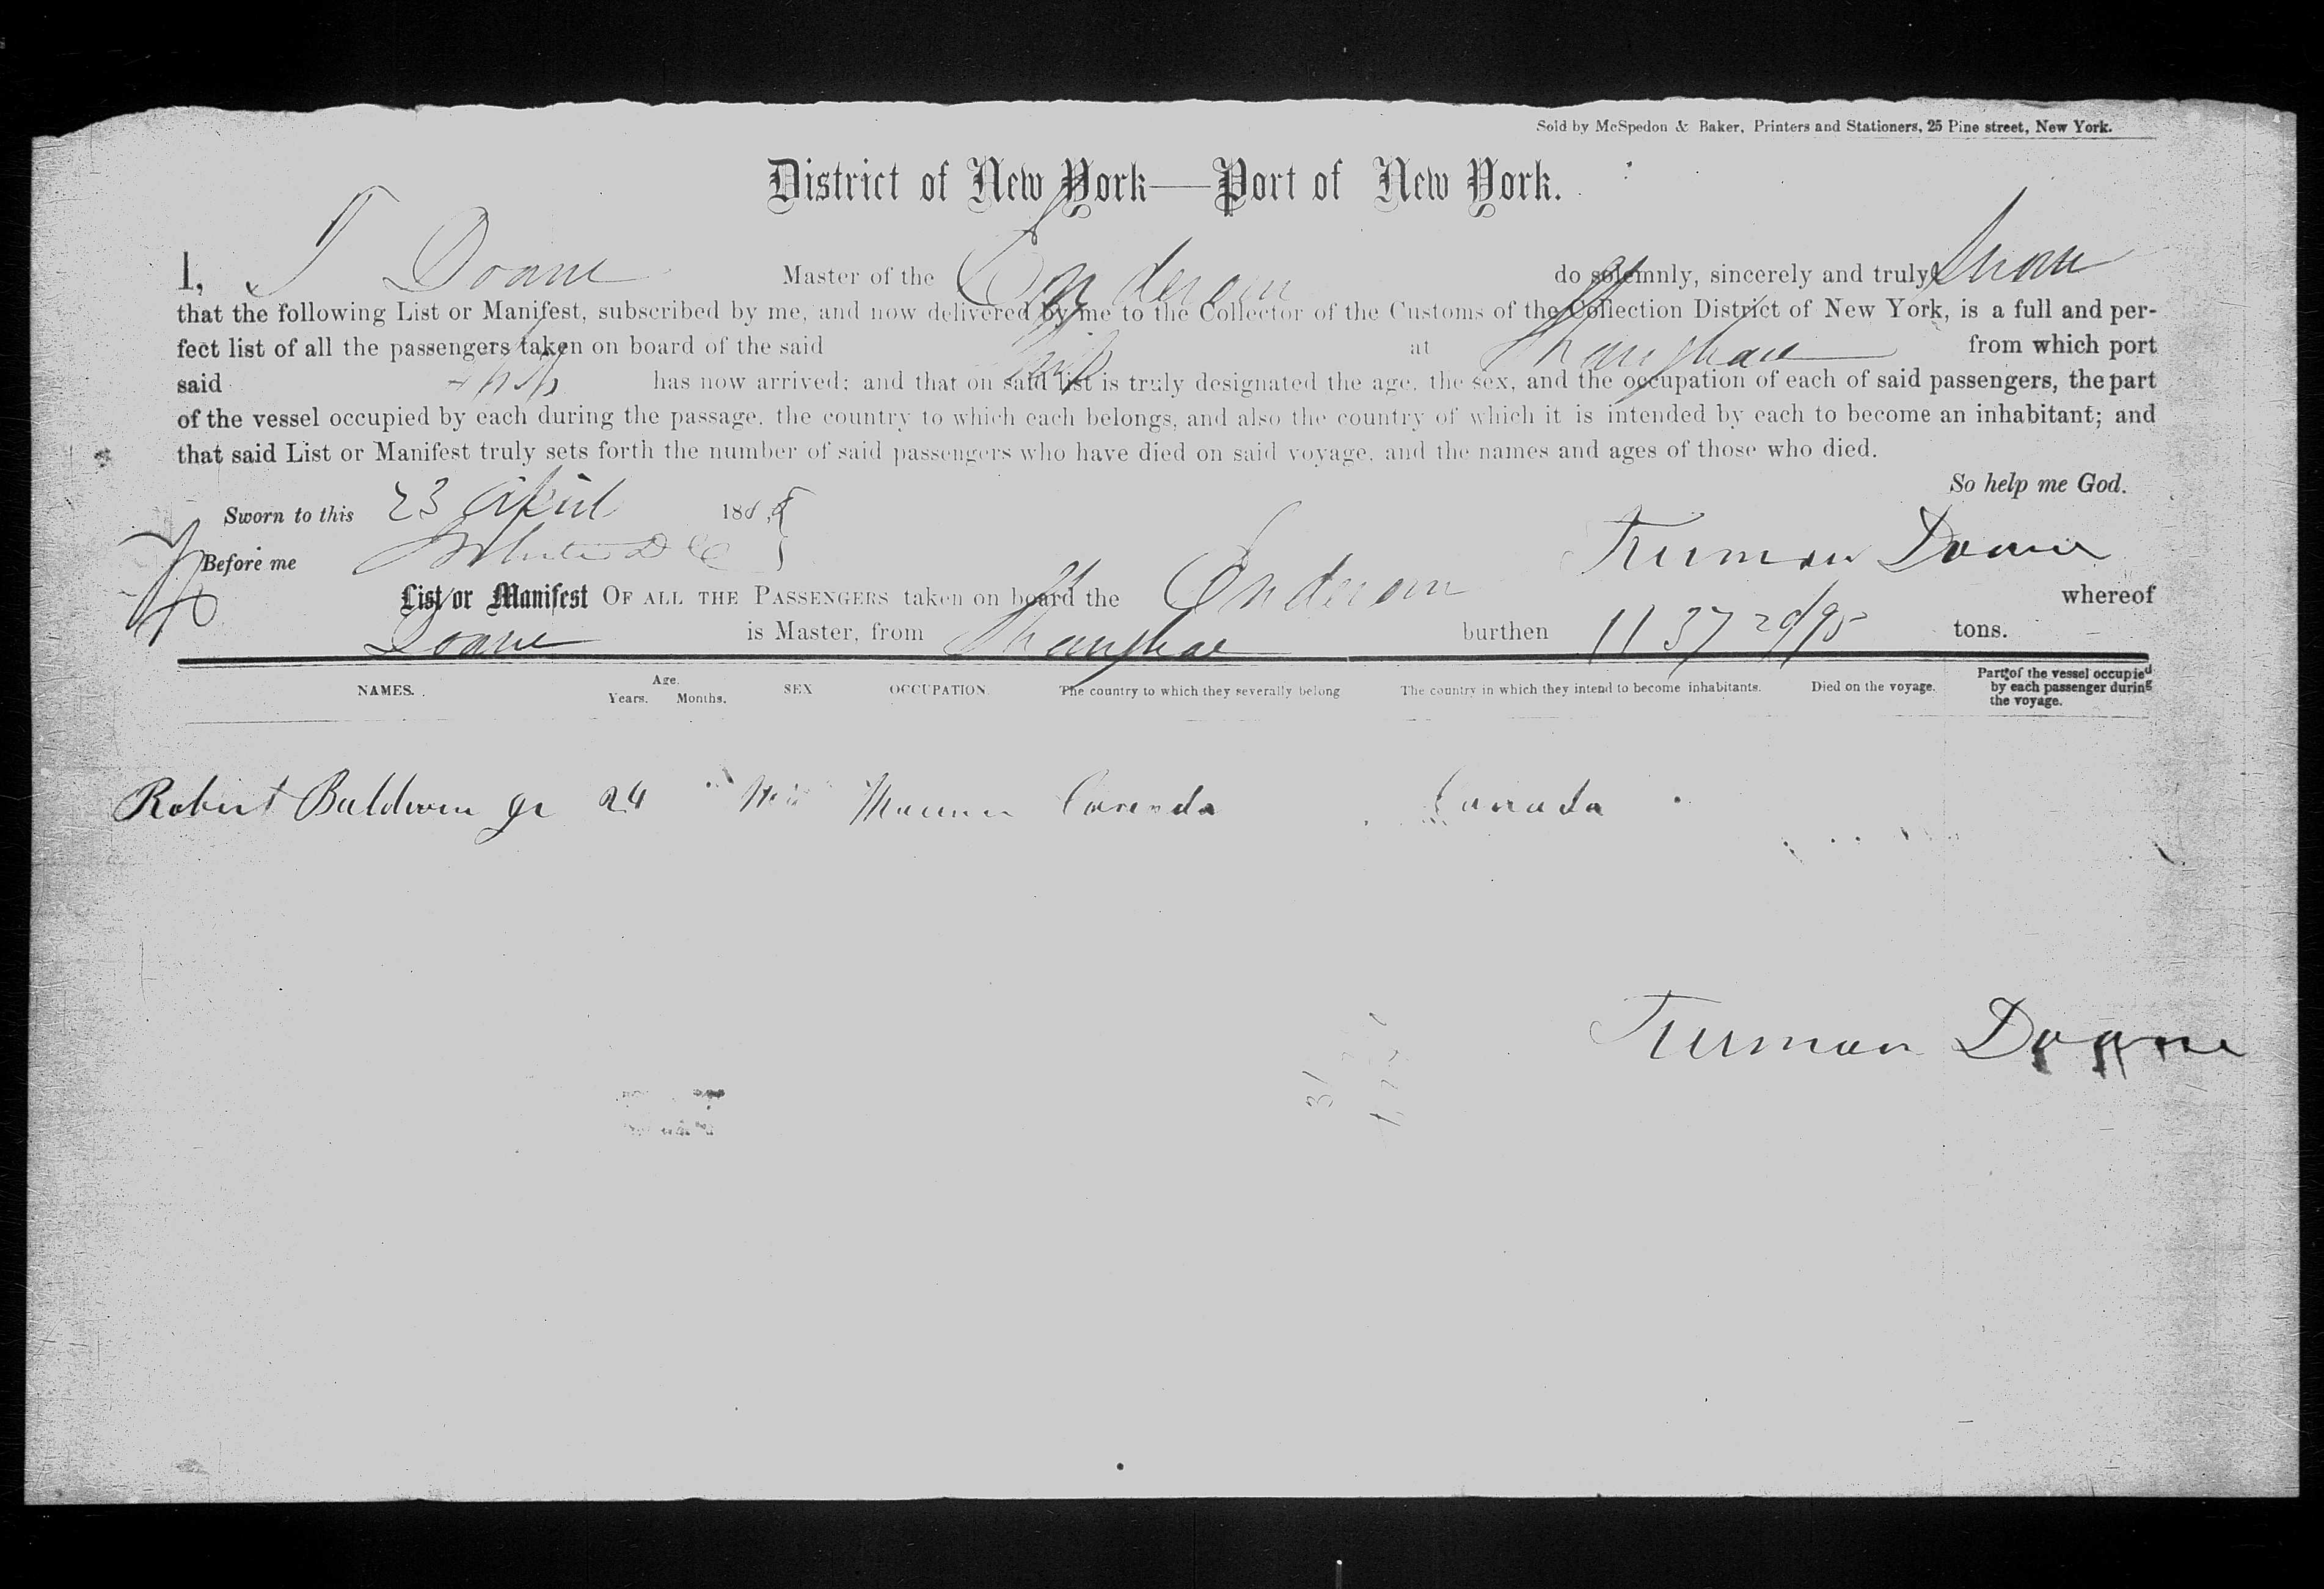 Sold by McSpedon & Baker, Printers and Stationers, 25 Pine street, New York.
District of New York—Port of New York.
I, T Doane Master of the Ship Enderoin do solemnly, sincerely and truly Swear
that the following List or Manifest, subscribed by me, and now delivered by me to the Collector of the Customs of the Collection District of New York, is a full and per-
fect list of all the passengers taken on board of the said Ship at Shanghae from which port
said Ship has now arrived; and that on said list is truly designated the age, the sex, and the occupation of each of said passengers, the part
of the vessel occupied by each during the passage, the country to which each belongs, and also the country of which it is intended by each to become an inhabitant; and
that said List or Manifest truly sets forth the number of said passengers who have died on said voyage, and the names and ages of those who died.
So help me God.
Sworn to this 23 April 185
Before me Truman Doane
List or Manifest OF ALL THE PASSENGERS taken on board the whereof
Doane is Master, from Shanghae burthen 1137 29/95 tons.
NAMES. Age. Years. Months. SEX OCCUPATION. The country to which they severally belong The country in which they intend to become inhabitants. Died on the voyage. Part of the vessel occupied by each passenger during the voyage.
Robert Baldwin Jr 24 Mariner Canada Canada
Truman Doane